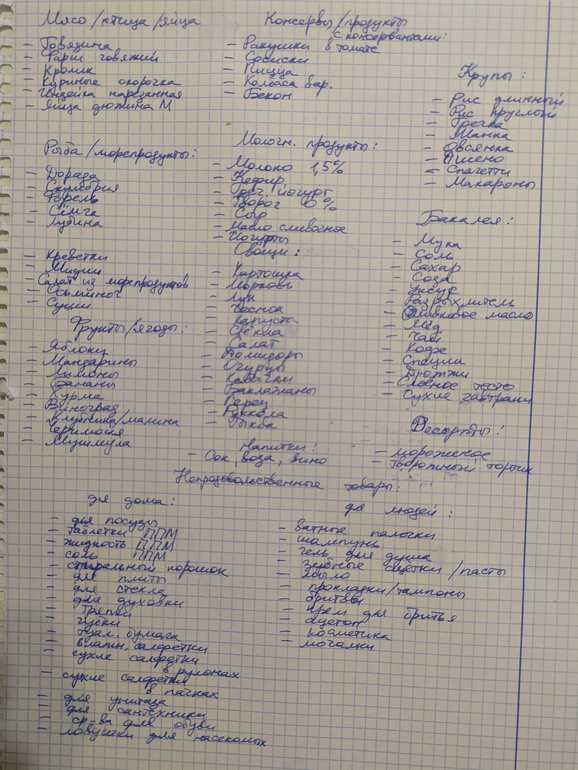 Мясо/птица/яйца
- Говядина
- Фарш говяжий
- Кролик
- Куриные окорочка
- Индейка нарезанная
- Яйца дюжина М
Консервы/продукты
с консервантами:
- Ракушки в томате
- Сосиски
- Пицца
- Колбаса вар.
- Бекон
Крупы:
- Рис длинный
- Рис круглый
- Гречка
- Манка
- Овсянка
- Пшено
- Спагетти
- Макароны
Рыба/морепродукты:
- Дорада
- Скумбрия
- Форель
- Сёмга
- Лубина
- Креветки
- Мидии
- Салат из морепродуктов
- Осьминог
- Суши
Молочн. продукты:
- Молоко 1,5%
- Кефир
- Греч. йогурт
- Творог 0%
- Сыр
- Масло сливочное
- Йогурты
Овощи:
- Картошка
- Морковь
- Лук
- Чеснок
- Капуста
- Свёкла
- Салат
- Помидоры
- Огурцы
- Кабачки
- Баклажаны
- Перец
- Руккола
- Тыква
Бакалея:
- Мука
- Соль
- Сахар
- Сода
- Уксус
- Разрыхлитель
- Оливковое масло
- Мёд
- Чай
- Кофе
- Специи
- Дрожжи
- Слоеное тесто
- Сухие завтраки
Фрукты/ягоды:
- Яблоки
- Мандарины
- Лимоны
- Бананы
- Хурма
- Виноград
- Клубника/малина
- Черимойя
- Мушмула
Напитки:
- Сок, вода, вино
Десерты:
- мороженое
- творожный тортик
Непродовольственные товары:
для дома:
- для посуды
- таблетки ППМ
- жидкость ППМ
- соль ППМ
- стиральный порошок
- для плиты
- для стекла
- для духовки
- тряпки
- губки
- туал. бумага
- влажн. салфетки
- сухие салфетки
в рулонах
- сухие салфетки
в пачках
- для унитаза
- для сантехники
- ср-ва для обуви
- ловушки для насекомых
для людей:
- ватные палочки
- шампунь
- гель для душа
- зубные щетки/пасты
- мыло
- прокладки/тампоны
- бритвы
- крем для бритья
- ацетон
- косметика
- мочалки